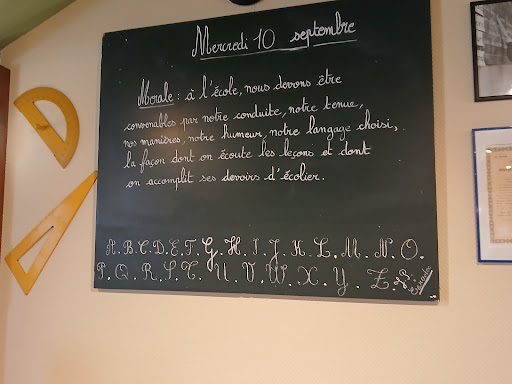 Mercredi 10 septembre
Morale : à l'école, nous devons être
convenables par notre conduite, notre tenue,
nos manières, notre humeur, notre langage choisi,
la façon dont on écoute les leçons et dont
on accomplit ses devoirs d'écolier.
A.B.C.D.E.F.G.H.I.J.K.L.M.N.O.
P.Q.R.S.T.U.V.W.X.Y.Z.